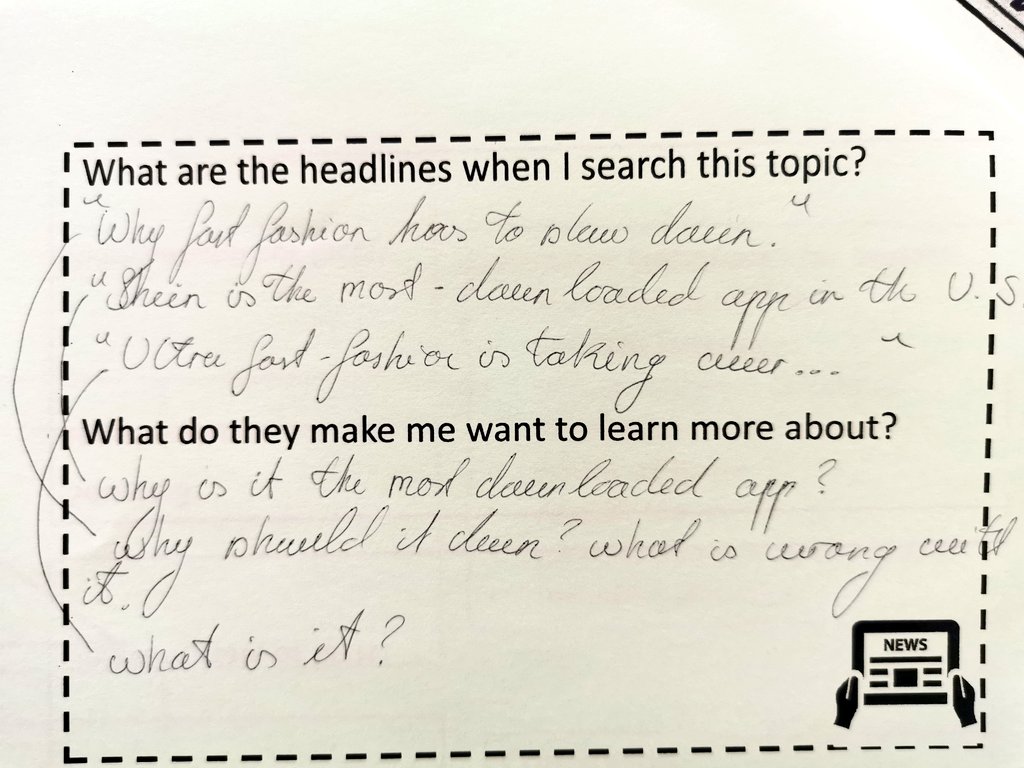 What are the headlines when I search this topic?
"Why fast fashion has to slow down."
"Shein is the most-downloaded app in the U.S.
"Ultra fast-fashion is taking over..."
What do they make me want to learn more about?
why is it the most downloaded app?
Why should it down? what is wrong with
it.
what is it?
NEWS